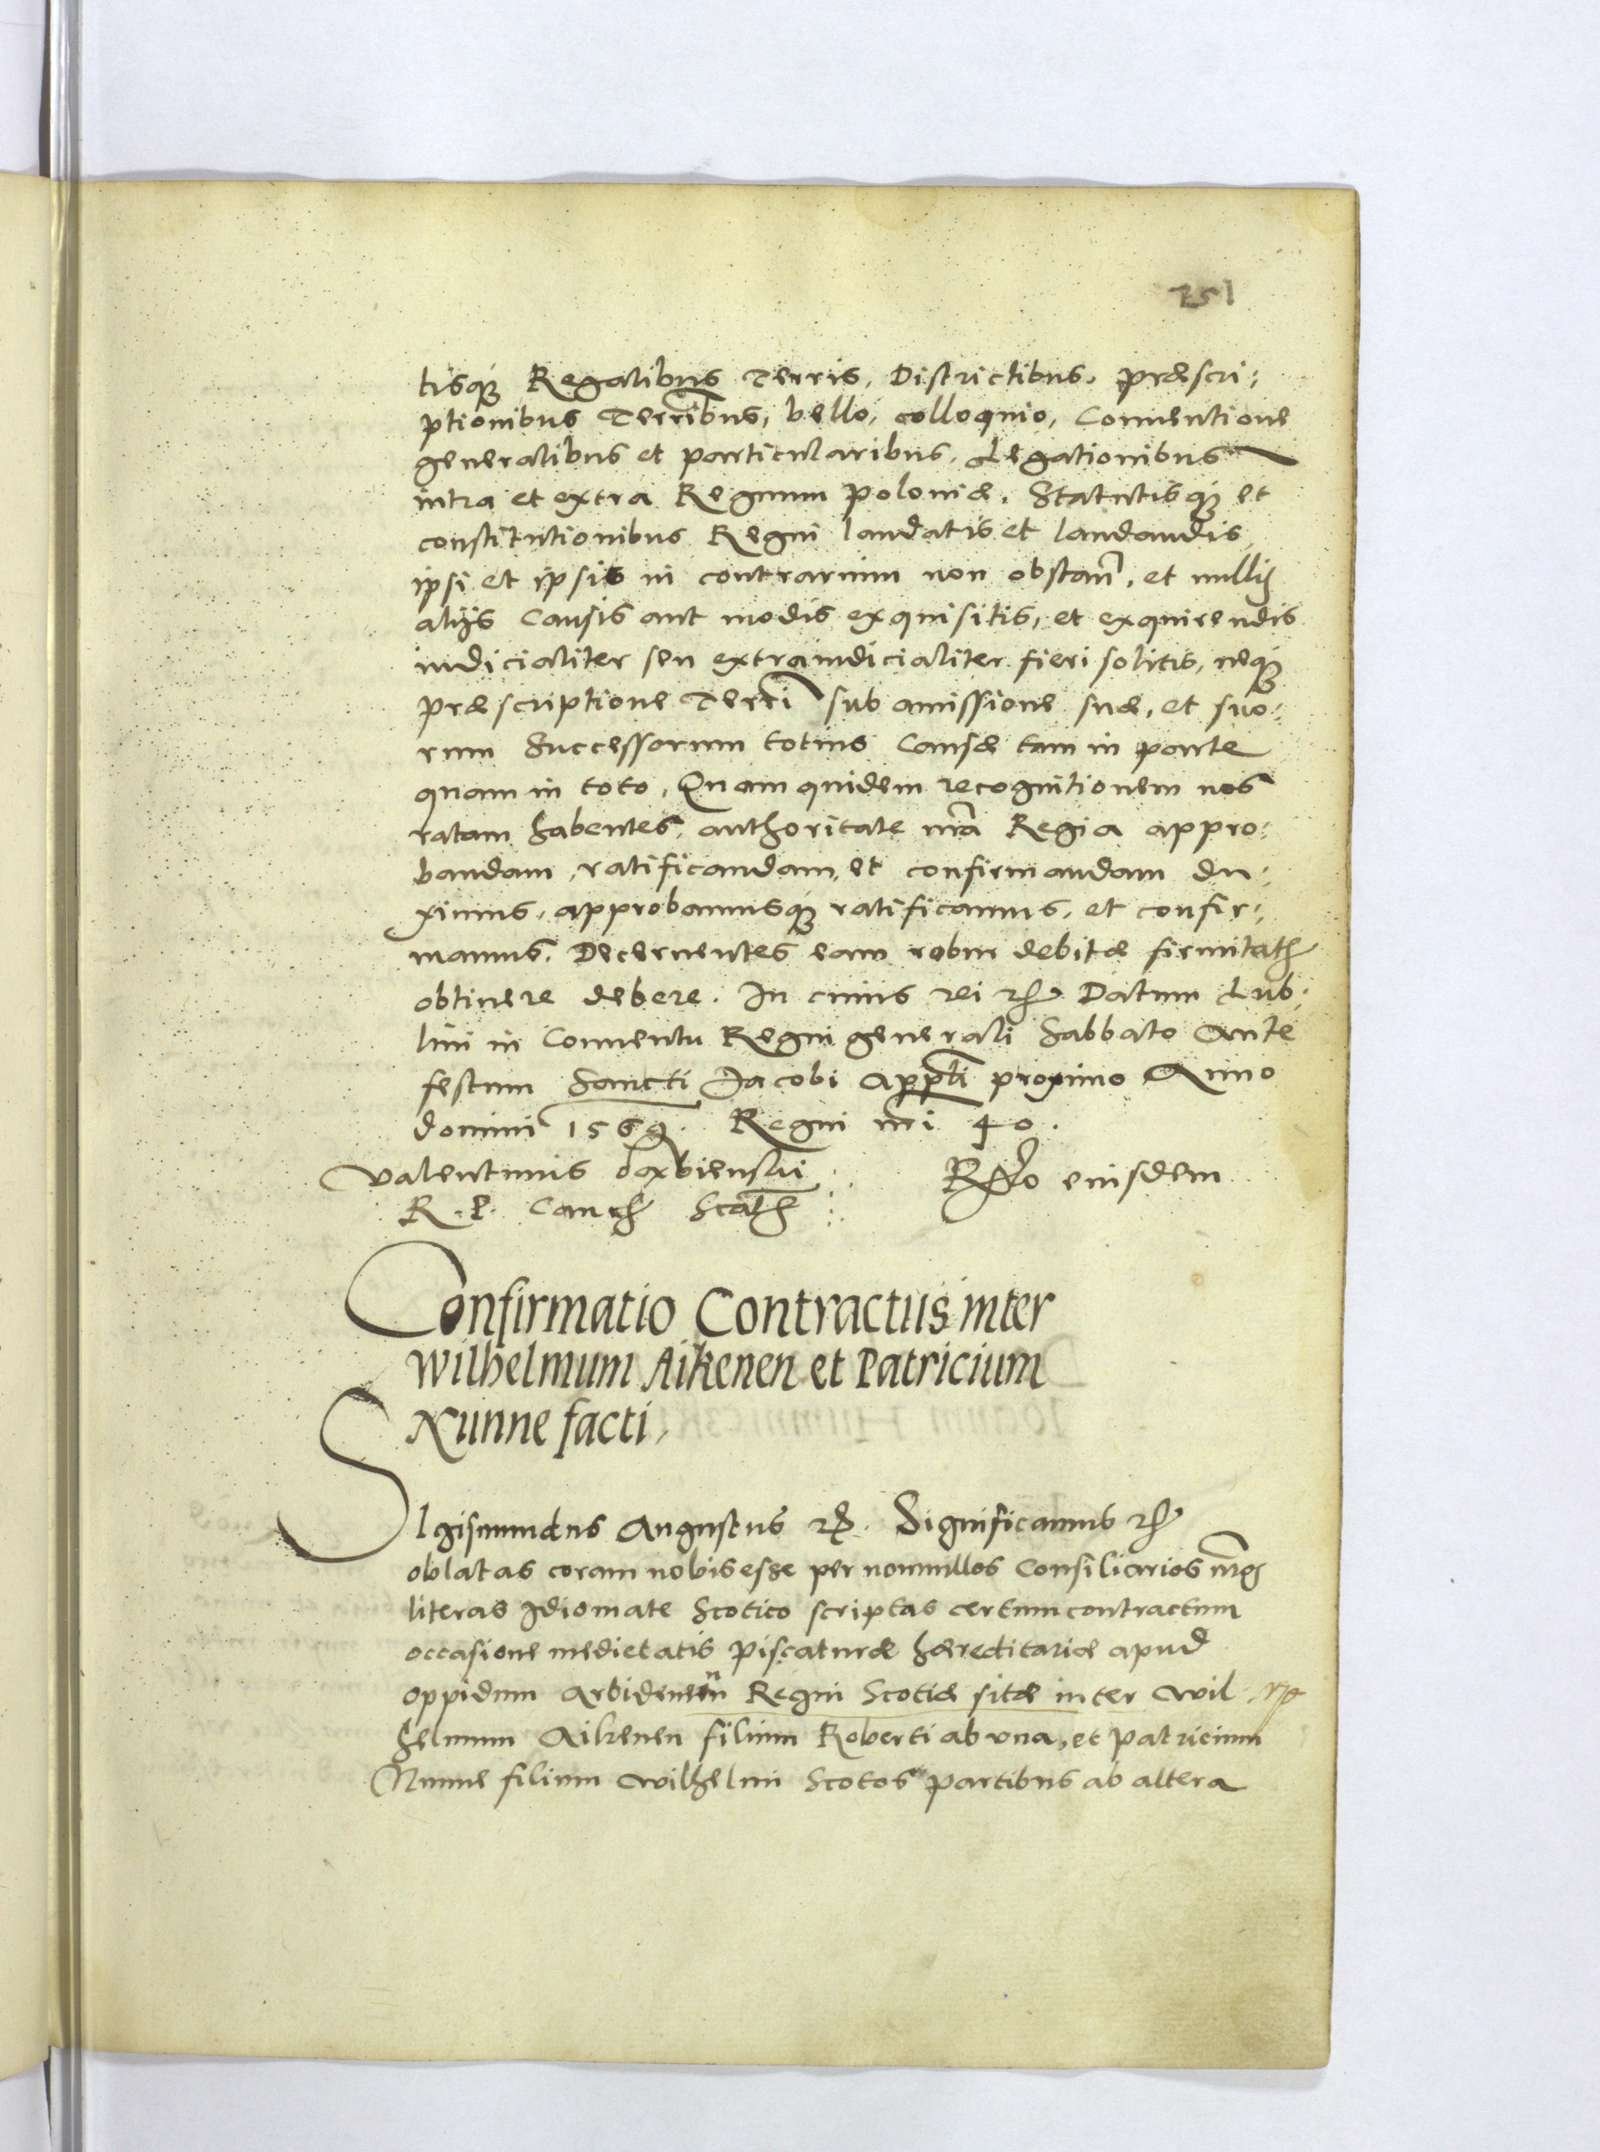 251
tisq́ꝫ Regalibus Terris, Districtibus, præscri:
ptionibus Terr̃ibus, bello, colloquio, Conuentione
generalibus et particularibus, Legationibus
intra et extra Regnum Poloniæ, Statutisq́ꝫ et
constitutionibus Regni laudatis et laudandis
ipsi et ipsis in contrarium non obstañ, et nullis
alijs Causis aut modis exquisitis, et exquirendis
iudicialiter seu extraiudicialiter fieri solitis, neq́ꝫ
præscriptione Terrĩ sub amissione suæ, et suo:
rum Successorum totius Causæ tam in parte
quam in toto, Quam quidem recognitionem nos
ratam habentes, authoritate nr̃a Regia appro:
bandam, ratificandam, et confirmandam du:
ximus, approbamusq́ꝫ ratificamus, et confir:
mamus, Decernentes eam robur debitæ firmitatis
obtinere debere. In cuius rei etc Datum Lub:
lini in Conuentu Regni generali Sabbato Ante
festum Sancti Jacobi App̃li proximo Anno
domini 1569. Regni nr̃i 40.
Valentinus Dembienski
R. P. Canc Scaть Rẽlo eiusdem
Confirmatio Contractus inter
Wilhelmum Aikenen et Patricium
Nunne facti,
SIgismundus Augustus etc. Significamus etc
oblatas coram nobis esse per nonnullos Consiliarios nr̃os
literas Idiomate Scotico scriptas certum contractum
occasione medietatis piscaturæ hæreditariæ apud
oppidum Arbidenen Regni Scotiæ sitæ inter Wil
helmum Aikenen filium Roberti ab vna, et Patricium
Nunne filium Wilhelmi Scotos partibus ab altera